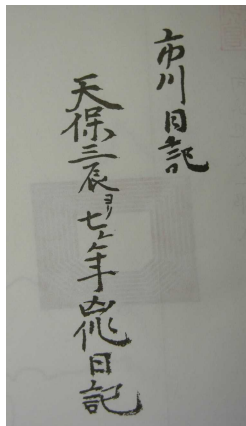 市川日記
天保三辰ヨリ七ヶ年凶作日記